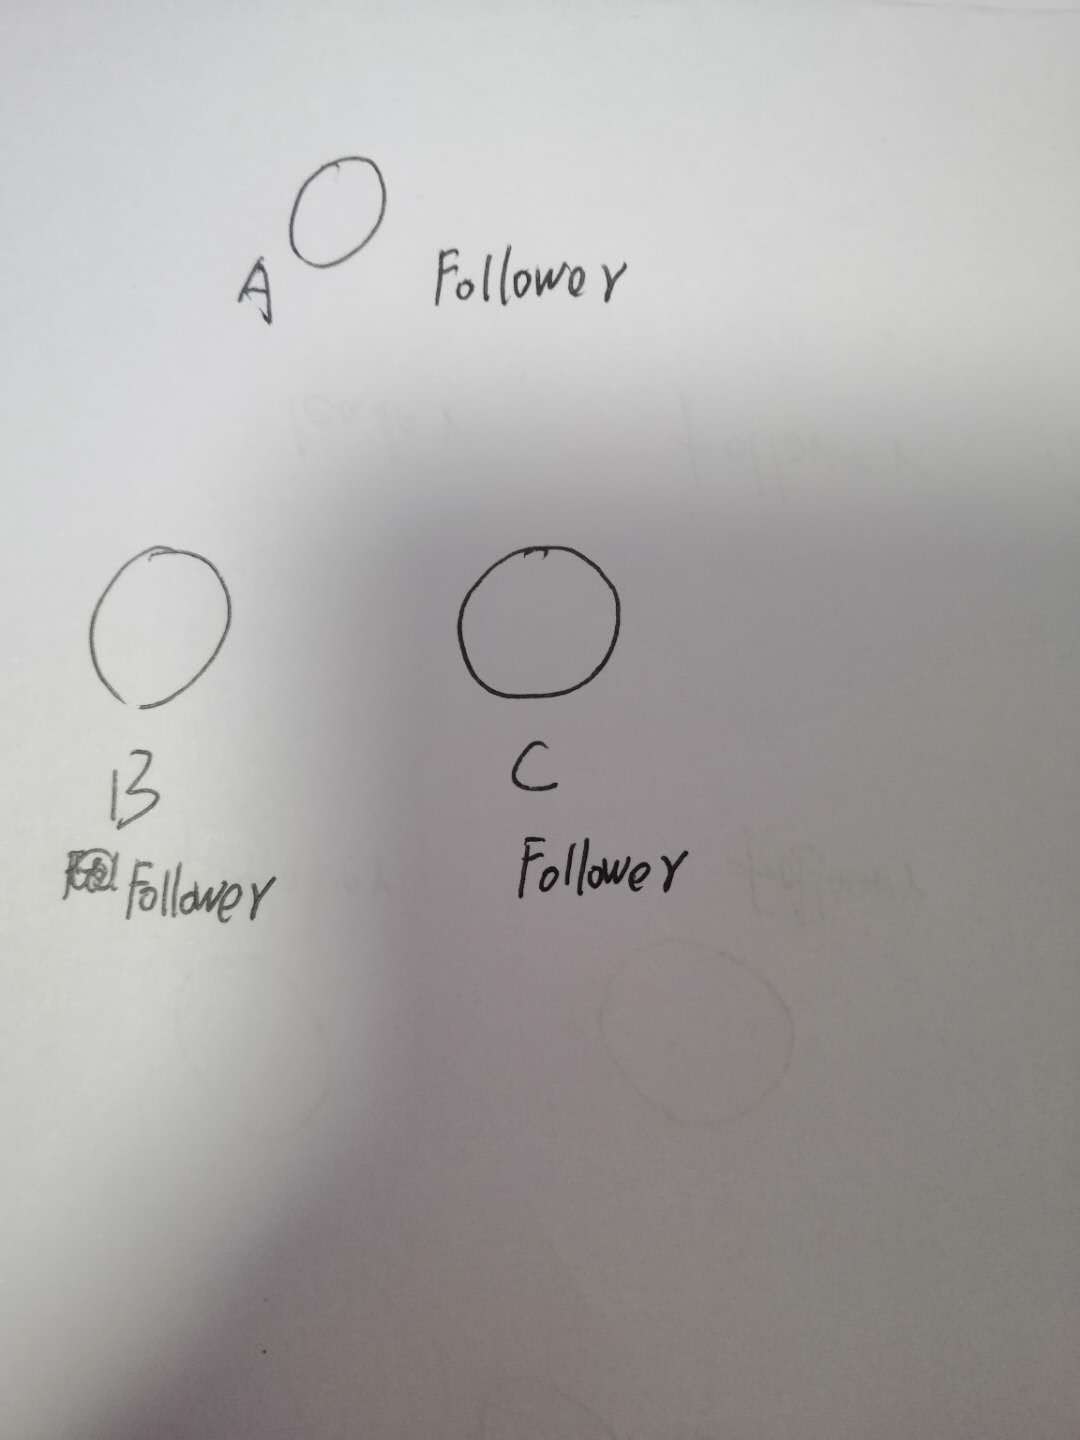 A Follower
B
C
Follower
Follower